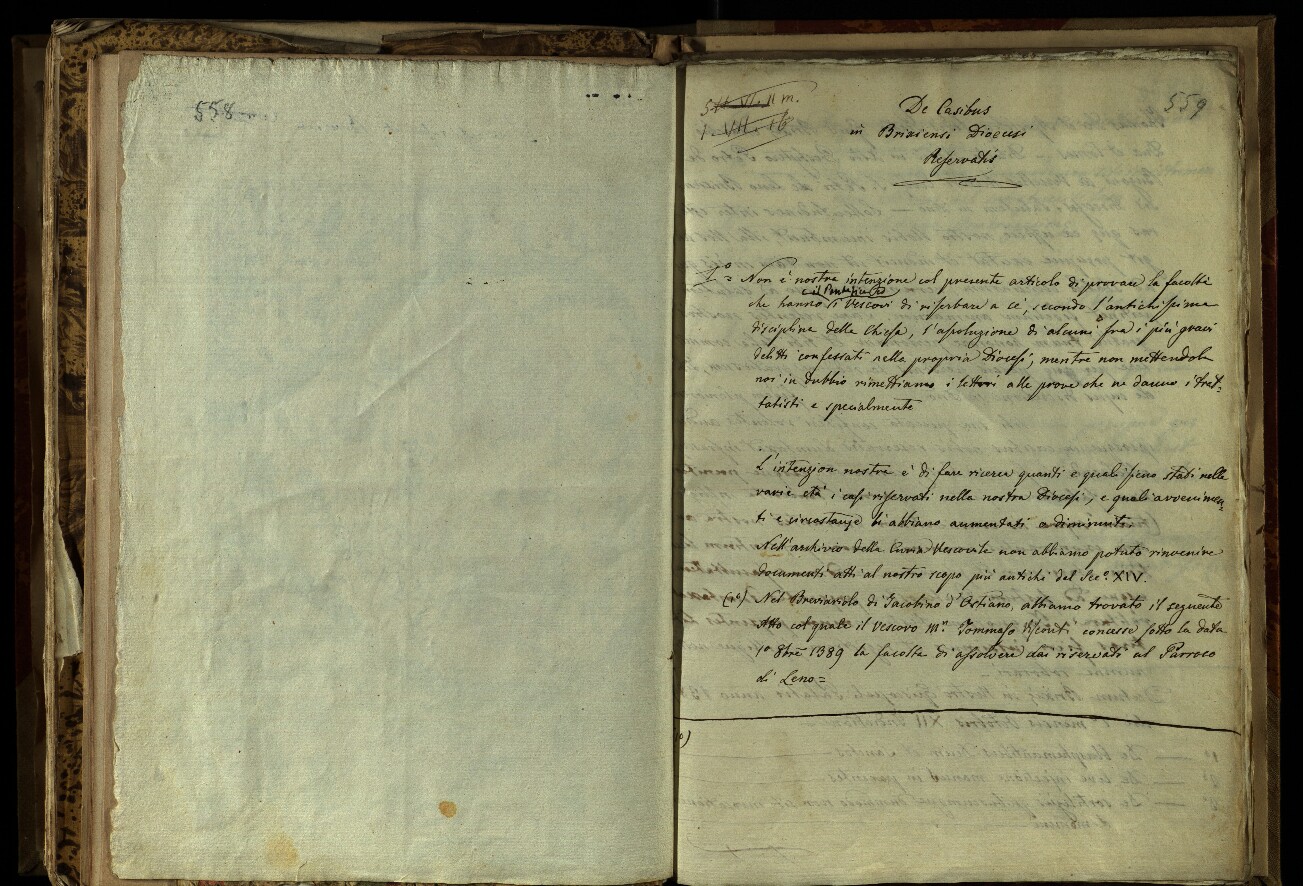 558
559
De Casibus
in Brixiensi Diocesi
Reservatis
1° = Non è nostra intenzione col presente articolo di provare la facoltà
il Pontefice ed
che hanno i Vescovi di riserbare a sé, secondo l'antichissima
disciplina della Chiesa, l'assoluzione di alcuni fra i più gravi
delitti confessati nella propria Diocesi, mentre non mettendola
noi in dubbio rimettiamo i lettori alle prove che ne danno i trat-
tatisti e specialmente
L'intenzion nostra è di fare ricerca quanti e quali sieno stati nelle
varie età i casi riservati nella nostra Diocesi, e quali avvenimen-
ti e circostanze li abbiano aumentati o diminuiti.
Nell'archivio della Curia Vescovile non abbiamo potuto rinvenire
documenti atti al nostro scopo più antichi del Sec°. XIV.
(1°) Nel Breviariolo di Jacobino d'Ostiano, abbiamo trovato il seguente
Atto col quale il Vescovo Mr. Tommaso Visconti concesse sotto la data
1° 8bre 1389 la facoltà di assolvere dai riservati al Parroco
di Leno =